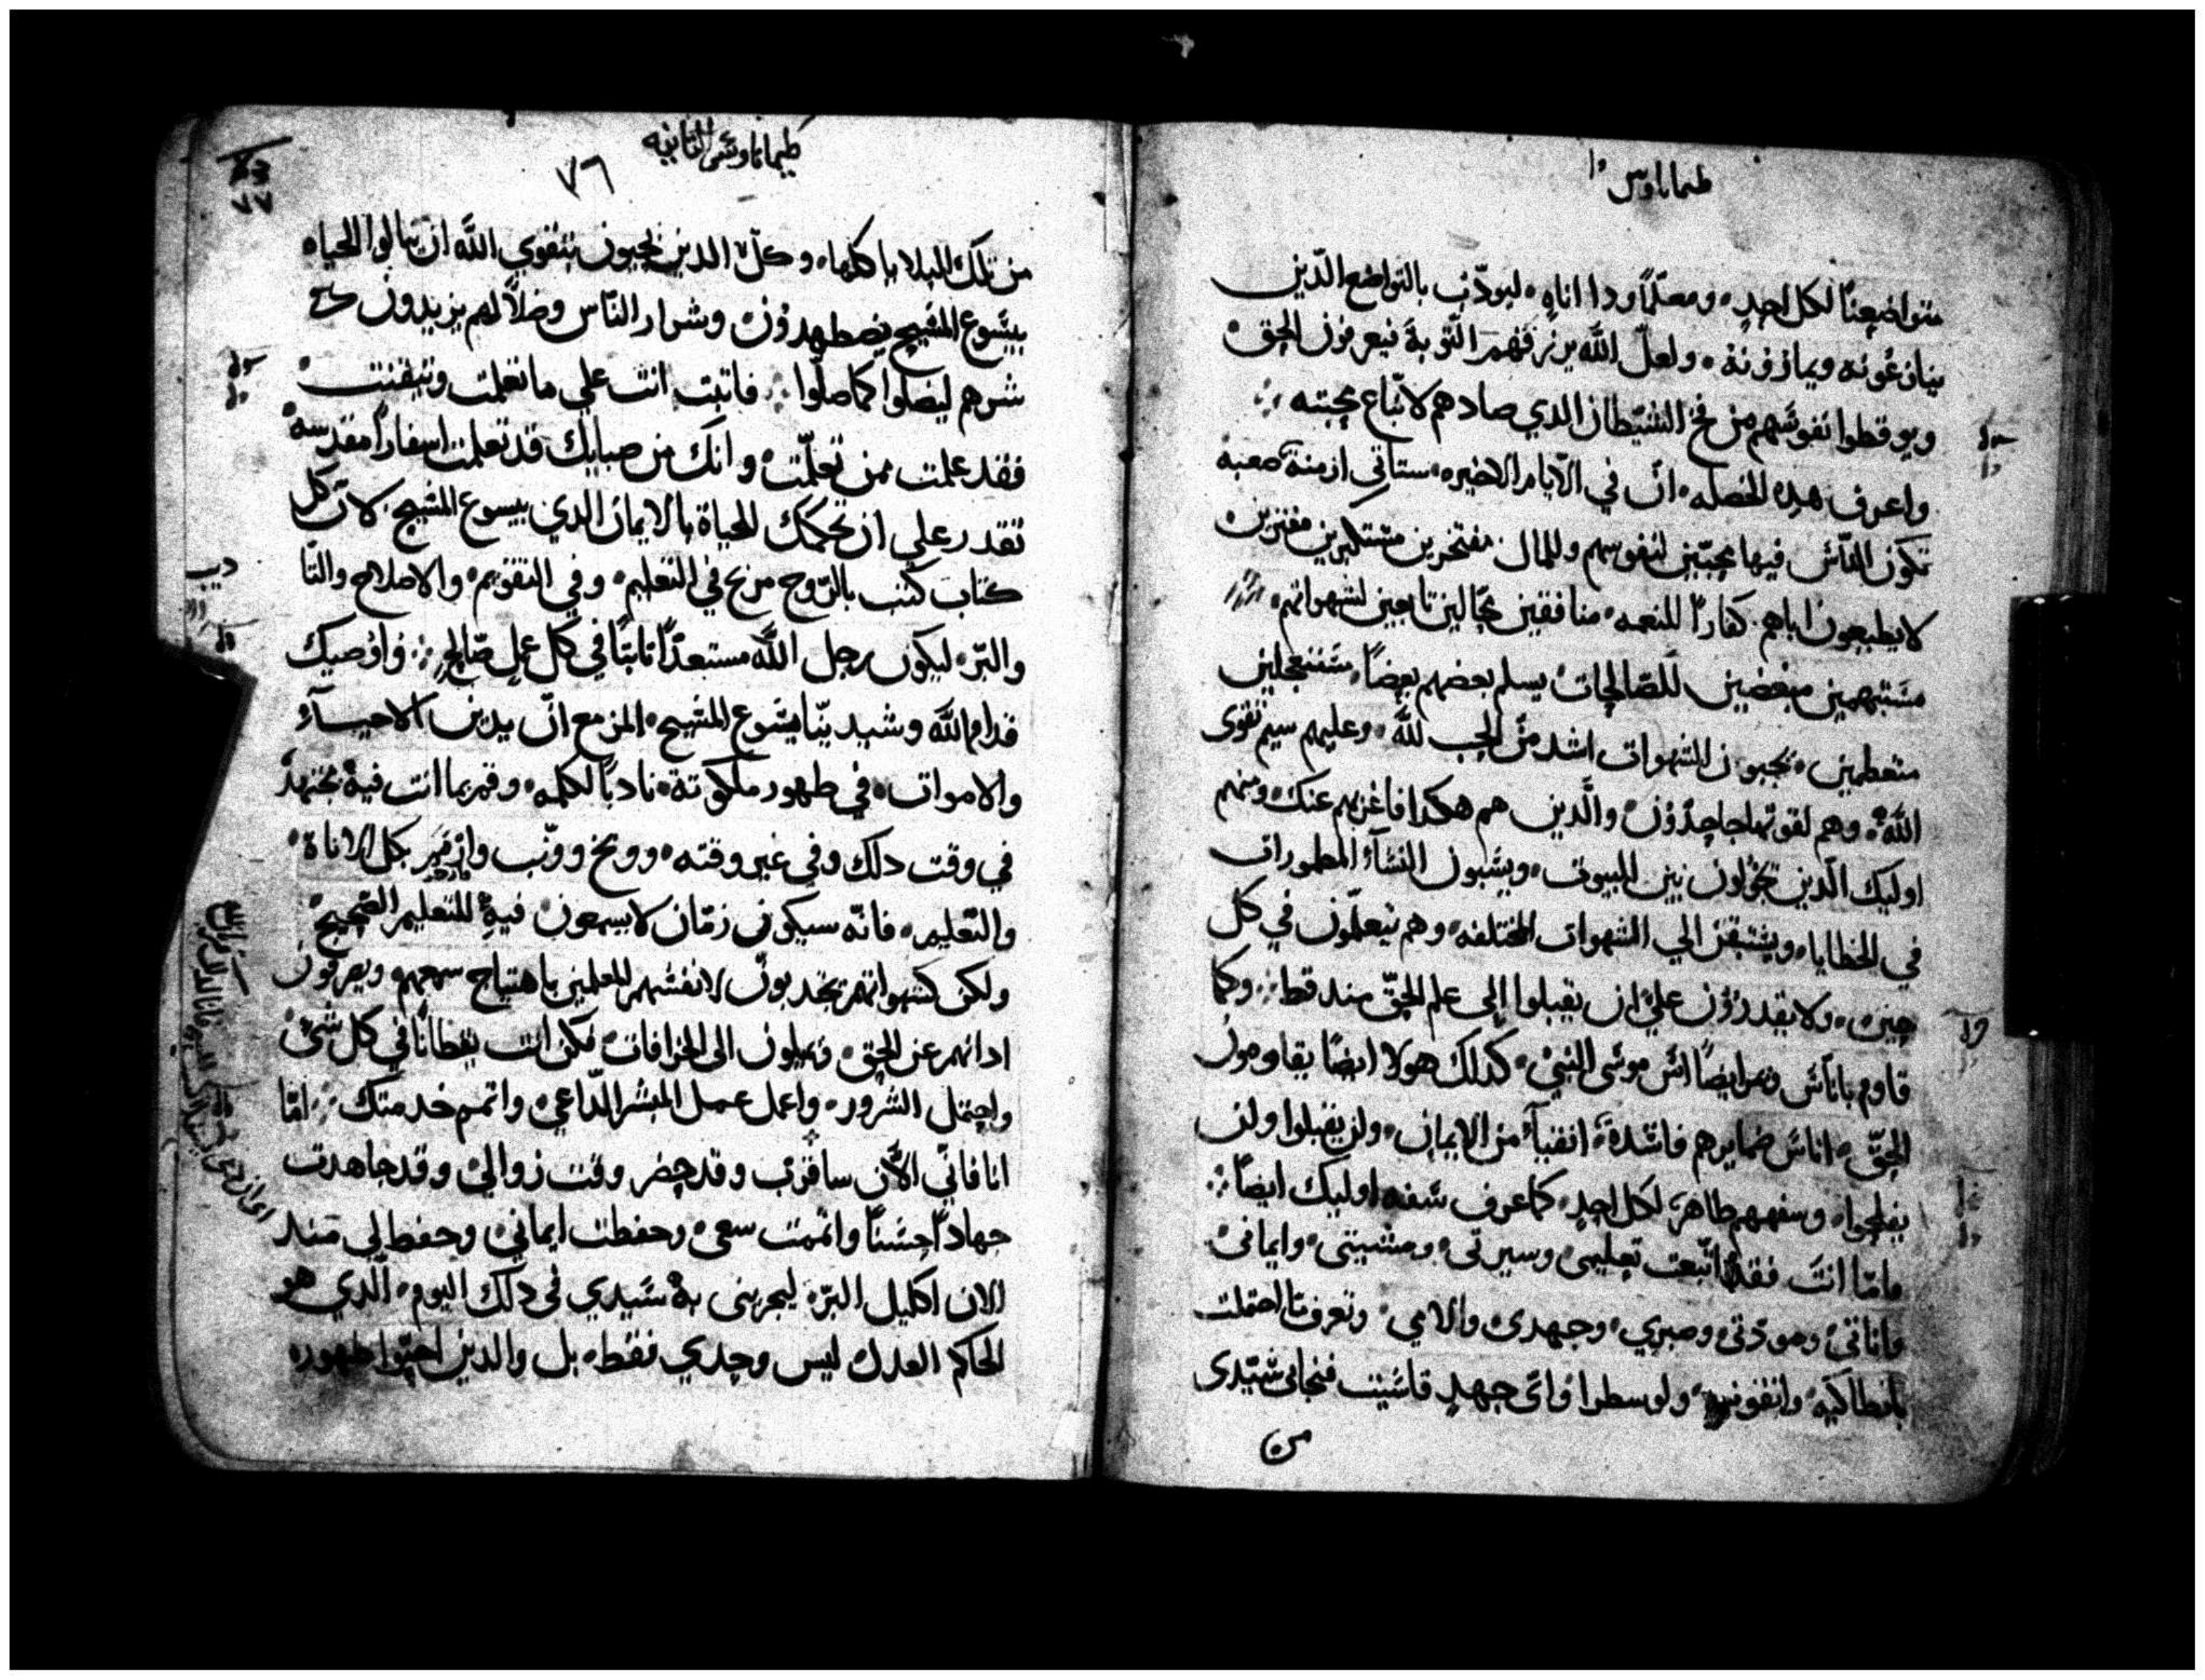 طيماتاوس
متواضعنًا لكل احدٍ، ومعلّمًا ودا اناهٍ، ليودّب بالتواضع الّدين
ينازعُونه ويمارونه، ولعلّ اللّه يرزقهم التّوبة فيعرفون الحق
ويوقظوا نفوسَهم من فخ الشيّطان الدي صادهم لاتّباع محبته
واعرف هده الخصله، انّ في الآيام الاخيره، ستاتي ازمنة صعبة
تكون النّاس فيها محبّين لنفوسهم وللمال مفتخرين مستكبرين مفترين
لا يطيعون اباهم كفارًا للنعمه، منافقين محّالين تابعين لشهواتهم،
مبغضين للصّالحات يسلم بعضهم بعضًا، مستعجلين
متعظمين، يحبون الشهوات اشد من الحب للّه، وعليهم سيم تقوى
اللّه، وهم لقوتها جاحِدُون والّدين هم هكدا فاغربهم عنك، ومنهم
اوليك الّدين يجولون بين البيوت، ويسَبون النسَآء المطمورات
في الخطايا، الي الشهوات المختلفه، وهم يتعلّمون في كل
حين، ولا يقدرُون علي ان يقبلوا الي علم الحقّ مند قط، وكما
قاوم ياناسَ ايضًا موسَى النبي، كدلك هولا ايضًا يقاومون
الحقّ، اناسَ ضمايرهم فاسَدة، انفيآء من الايمان، ولن يقبلوا ولن
يفلحوا، وسفههم ظاهر لكل احدٍ، كما عرف سَفه اوليك ايضًا
فامّا انتَ فقد اتّبعت تعليمى، وسيرتى، ومشيتى، وايمانى
واناتى، ومودّتى، وصبري، وجهدى والامي، وتعرف ما احتملت
بانطاكيّه، ولوسطرا وائ جهدٍ قاسَيت فنجانى سَيّدى
من
طيماتاوسَ الثانيه
٧٦
٧٧
من تلك البلايا كلها، وكلّ الدين يحيون بتقوي اللّه ان ينالوا الحياه
بيسَوع المسَيح يضطهدُون، وشرار النّاس وضلالهم يزيدون علي
شرهم ليضلوا كما ضلّوا، فاتبت انت علي ما تعلمت وتيقنت
فقد علمت ممن تعلّمت، وانك من صبايك قد تعلمت اسفارًا مقدسه
تقدر علي ان تحكمك للحياة بالايمان الدي بيسوع المسَيح لانّ كل
كتاب كتب بالرّوح مربح في التعليم، وفي التقويم، والاصلاح والتا
والبرّ، ليكون رجل اللّه مستعدًا تابتًا في كل عملٍ صالح، واوُصيك
قدام اللّه وسَيدينّا يسَوع المسَيح، المزمع انّ يدين الاحيآء
والامواتّ، في ظهور ملكوته، ناديًا لكلمه، وقم بما انت فيه مجتهدًا
في وقت دلك وفى غير وقته، ووبخ وونّب بكل الاناة
والتّعليم، فانّه سيكون زمّان لا يسمعون فيهِ للتعليم الصّحيح
ولكن كشهواتهم يجدبون لانفسَهم المعلمين باهتياج سمعهم ويصرفون
ادانهم عن الحق، ويميلون الى الخرافات فكن انت يقظانًا في كل شى
واحتمل الشرور، واعمل عمل المبشر الدّاعي، واتمم خدمتك، امّا
انا فانّي الآن ساقرّب وقد حضر وقت زوالى، وقد جاهدت
جهادًا حسَنًا واتممت سعى، وحفظت ايمانى، وحفظ لي مند
الان اكليل البرّ، ليجزينى به سَيدي فى دلك اليوم، الّدي هو
الحاكم العدل ليس وحدي فقط، بل والدين احبّوا ظهوره